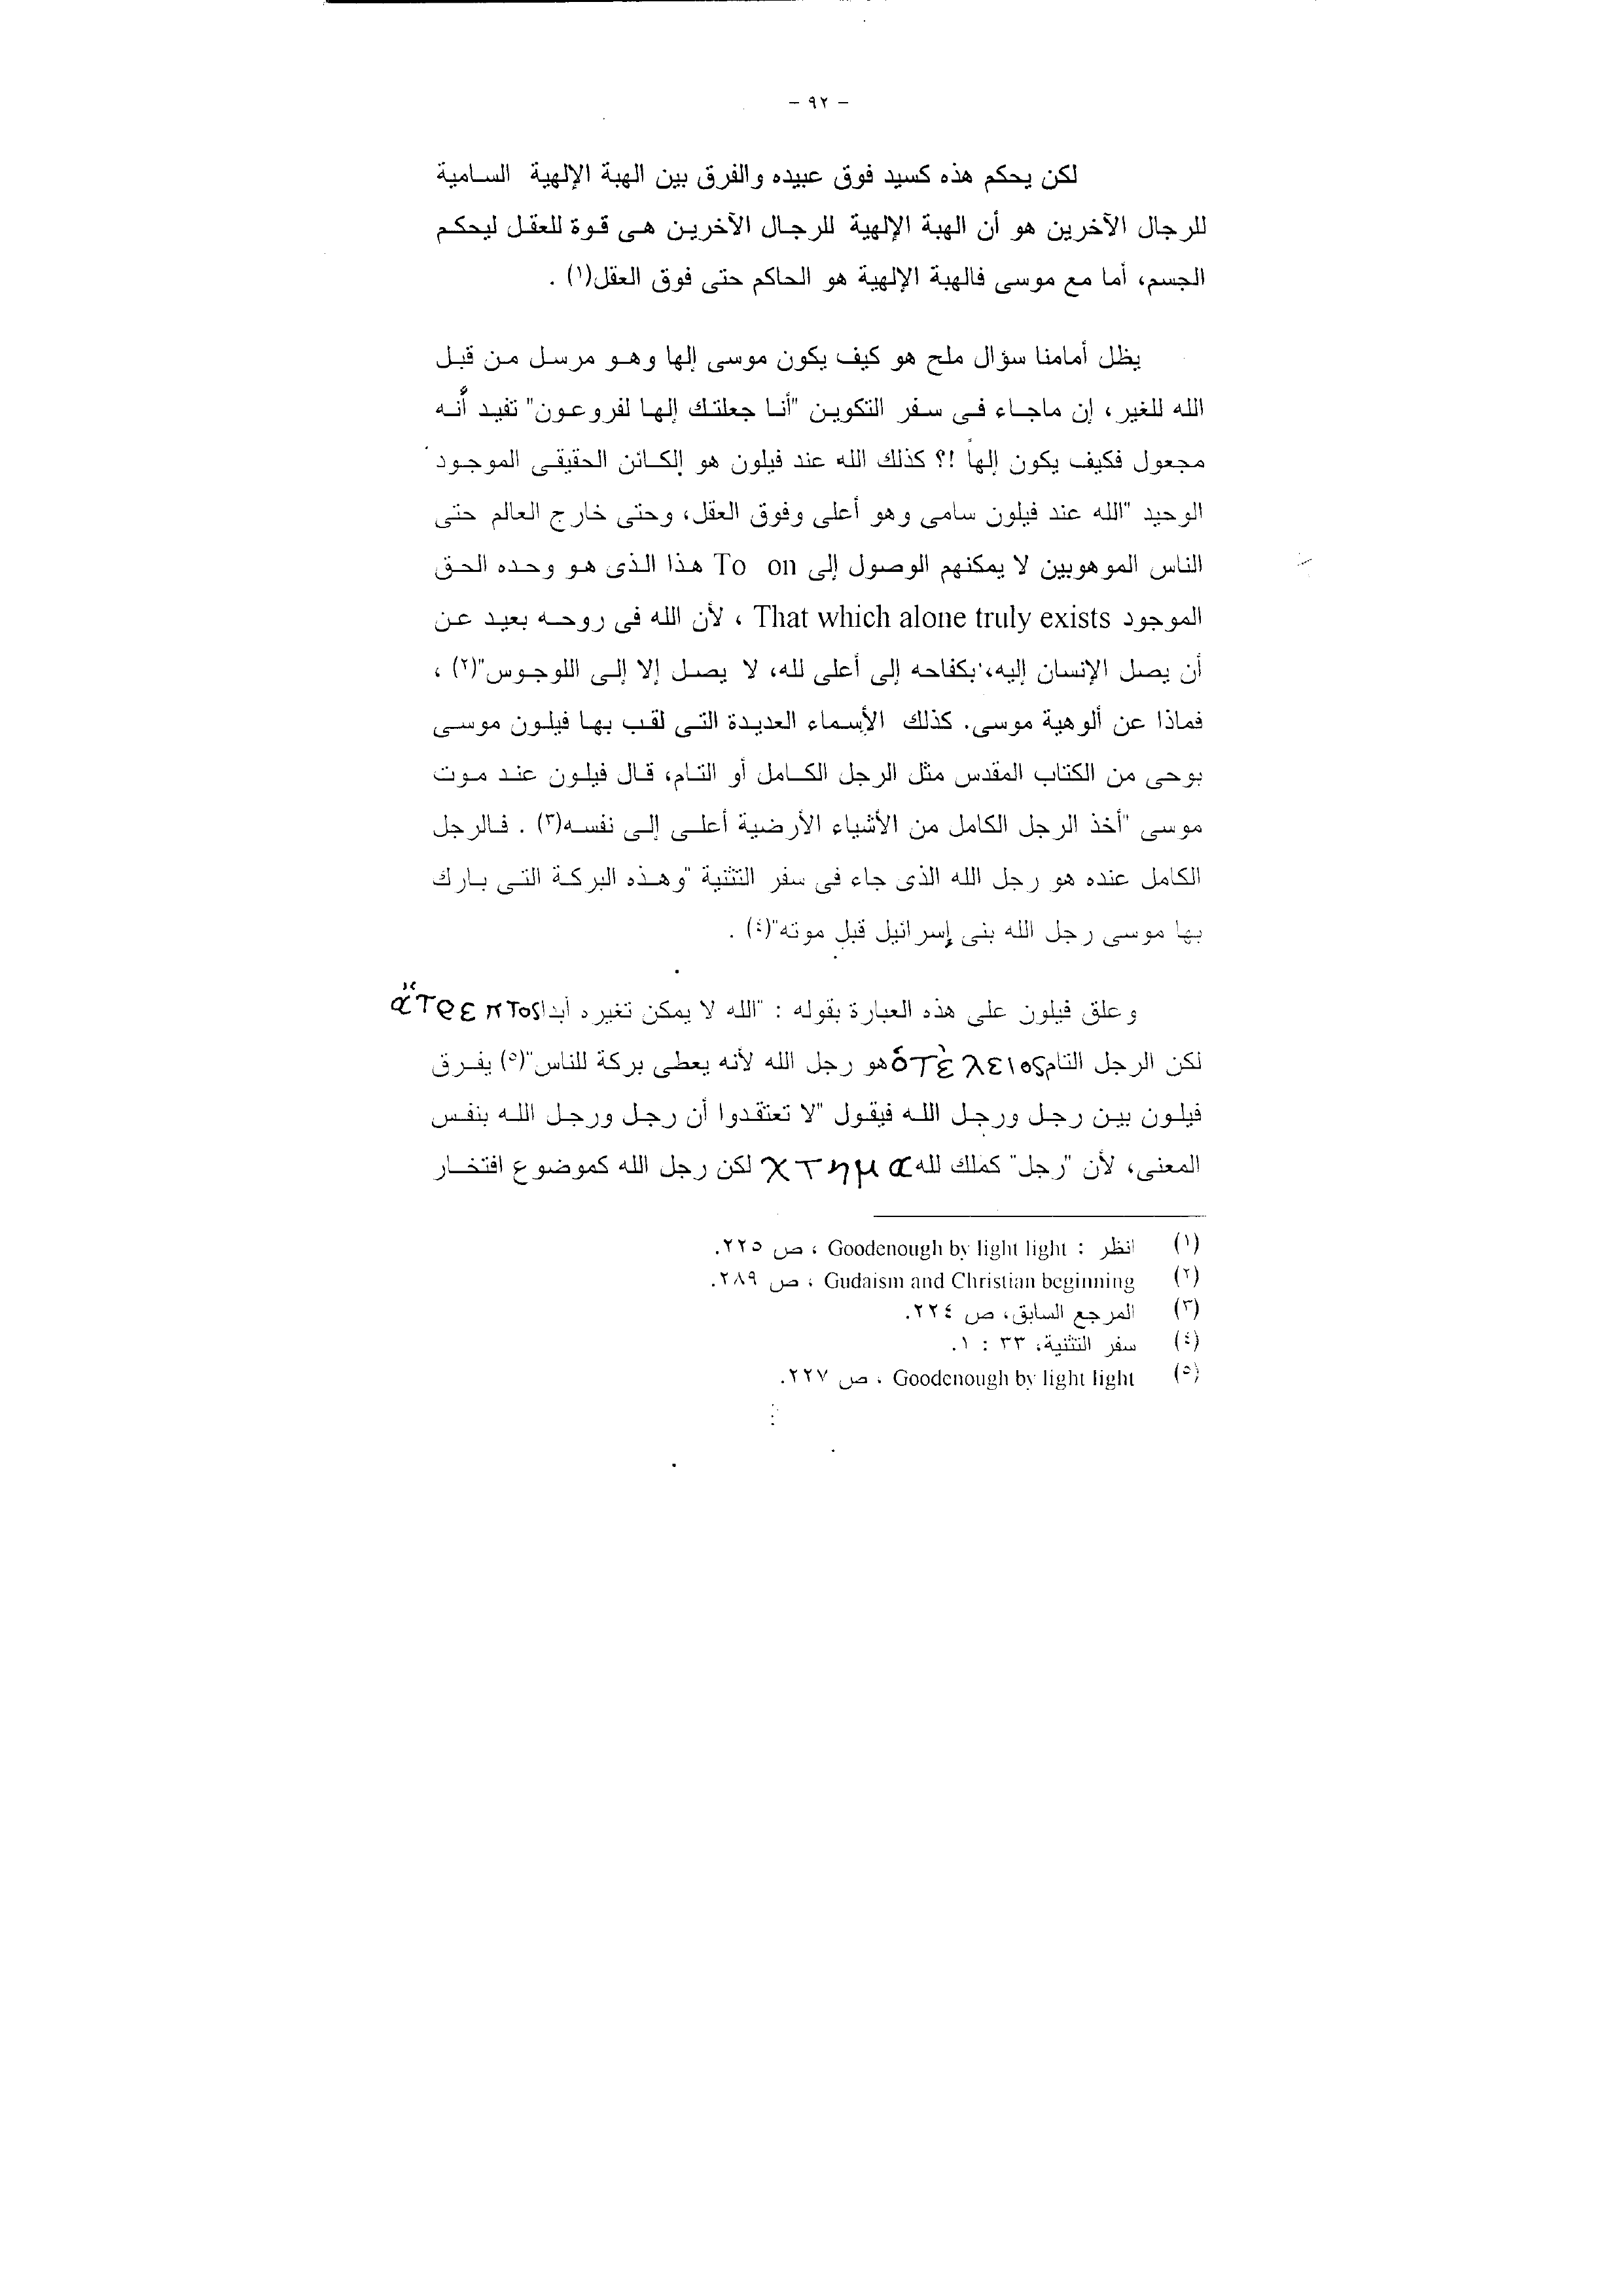 - ٩٢ -
لكن يحكم هذه كسيد فوق عبيده والفرق بين الهبة الإلهية السامية
للرجال الآخرين هو أن الهبة الإلهية للرجال الآخرين هى قوة للعقل ليحكم
الجسم، أما مع موسى فالهبة الإلهية هو الحاكم حتى فوق العقل(١) .
يظل أمامنا سؤال ملح هو كيف يكون موسى إلها وهو مرسل من قبل
الله للغير، إن ماجاء فى سفر التكوين "أنا جعلتك إلها لفرعون" تفيد أنه
مجعول فكيف يكون إلهاً !؟ كذلك الله عند فيلون هو الكائن الحقيقى الموجود
الوحيد "الله عند فيلون سامى وهو أعلى وفوق العقل، وحتى خارج العالم حتى
الناس الموهوبين لا يمكنهم الوصول إلى To on هذا الذى هو وحده الحق
الموجود That which alone truly exists ، لأن الله فى روحه بعيد عن
أن يصل الإنسان إليه، بكفاحه إلى أعلى لله، لا يصل إلا إلى اللوجوس"(٢) ،
فماذا عن ألوهية موسى. كذلك الأسماء العديدة التى لقب بها فيلون موسى
بوحى من الكتاب المقدس مثل الرجل الكامل أو التام، قال فيلون عند موت
موسى "أخذ الرجل الكامل من الأشياء الأرضية أعلى إلى نفسه(٣) . فالرجل
الكامل عنده هو رجل الله الذى جاء فى سفر التثنية "وهذه البركة التى بارك
بها موسى رجل الله بنى إسرائيل قبل موته"(٤) .
وعلق فيلون على هذه العبارة بقوله : "الله لا يمكن تغيره أبدا ἄτρεπτος
لكن الرجل التام ὁτέλειος هو رجل الله لأنه يعطى بركة للناس"(٥) يفرق
فيلون بين رجل ورجل الله فيقول "لا تعتقدوا أن رجل ورجل الله بنفس
المعنى، لأن "رجل" كملك لله χτημα لكن رجل الله كموضوع افتخار
(١) انظر : Goodenough by light light ، ص ٢٢٥.
(٢) Gudaism and Christian beginning ، ص ٢٨٩.
(٣) المرجع السابق، ص ٢٢٤.
(٤) سفر التثنية، ٣٣ : ١.
(٥) Goodenough by light light ، ص ٢٢٧.